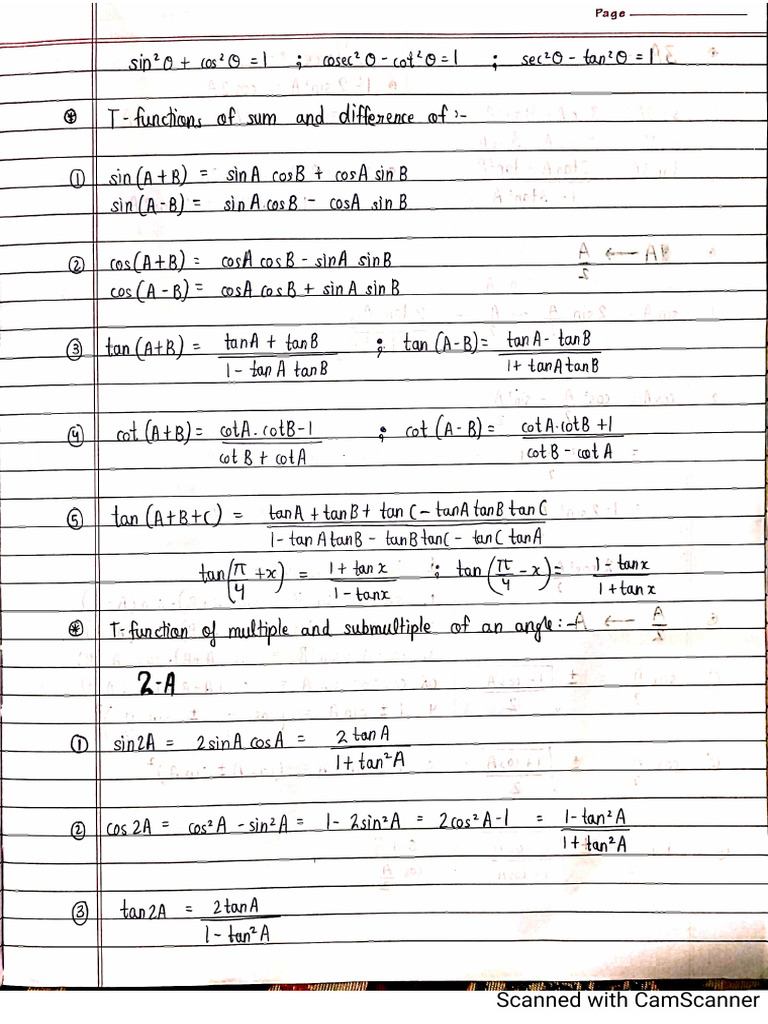 Page
sin²θ + cos²θ = 1 ; cosec²θ - cot²θ = 1 ; sec²θ - tan²θ = 1
⊛ T-functions of sum and difference of :-
① sin(A+B) = sinA cosB + cosA sinB
sin(A-B) = sinA.cosB - cosA sinB
② cos(A+B) = cosA cosB - sinA sinB
cos(A-B) = cosA cosB + sinA sinB
③ tan(A+B) = (tanA + tanB)/(1 - tanA tanB) ; tan(A-B) = (tanA - tanB)/(1 + tanA tanB)
④ cot(A+B) = (cotA.cotB-1)/(cotB + cotA) ; cot(A-B) = (cotA.cotB+1)/(cotB - cotA)
⑤ tan(A+B+C) = (tanA + tanB + tanC - tanA tanB tanC)/(1 - tanA tanB - tanB tanC - tanC tanA)
tan(π/4 + x) = (1 + tanx)/(1 - tanx) ; tan(π/4 - x) = (1 - tanx)/(1 + tanx)
⊛ T-function of multiple and submultiple of an angle:-
2-A
① sin2A = 2sinA cosA = 2tanA/(1 + tan²A)
② cos2A = cos²A - sin²A = 1 - 2sin²A = 2cos²A - 1 = (1 - tan²A)/(1 + tan²A)
③ tan2A = 2tanA/(1 - tan²A)
Scanned with CamScanner